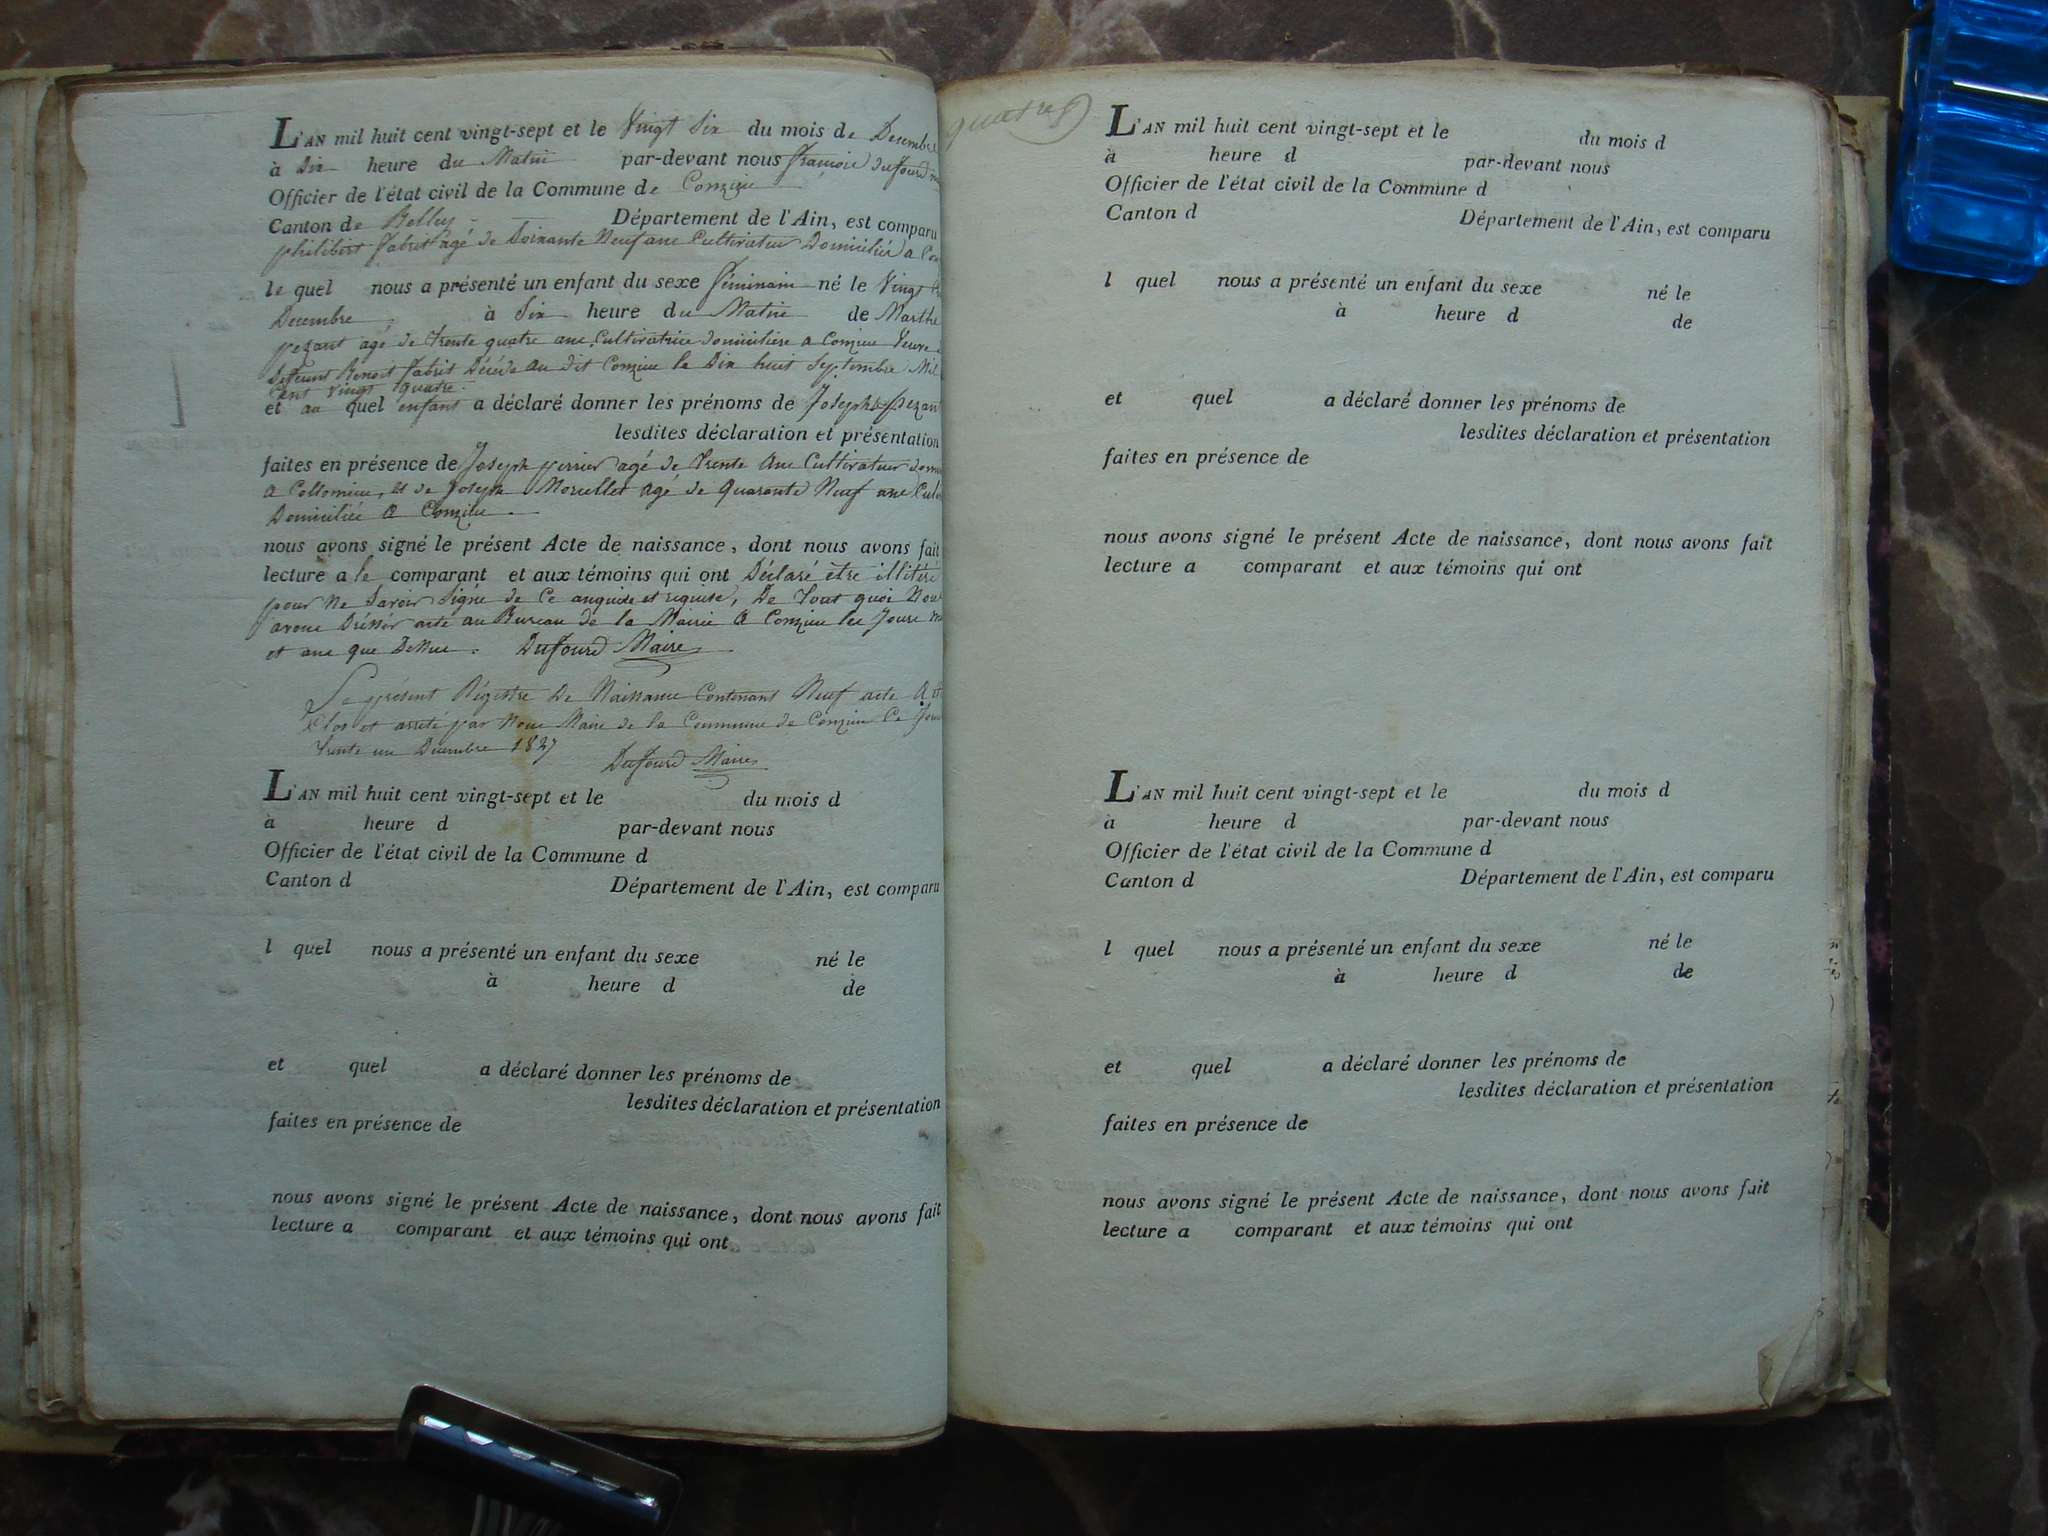 L'AN mil huit cent vingt-sept et le Vingt Six du mois de Decembre
à Dix heure du Matin par-devant nous François Dufourd
Officier de l'état civil de la Commune de Conzieu
Canton de Belley Département de l'Ain, est comparu
philibert fabret agé de Soixante Neuf ans Cultivateur Domicilié a
le quel nous a présenté un enfant du sexe féminain né le Vingt
Decembre à Six heure du Matin de Marthe
pezant agé de trente quatre ans Cultivatrice domiciliée a Conzieu Veuve
Deffeunt Benoit fabret Décédé au dit Conzieu le Dix huit Septembre Mil
Cent Vingt quatre.
et au quel enfant a déclaré donner les prénoms de Josephe Pezant
lesdites déclaration et présentation
faites en présence de Joseph perrier agé de trente Ans Cultivateur
a Collomieu, et de Joseph Morellet agé de Quarante Neuf ans
Domiciliée a Conzieu.
nous avons signé le présent Acte de naissance, dont nous avons fait
lecture a le comparant et aux témoins qui ont Déclaré être illitéré
pour Ne Savoir Signé de Ce enquis et requis, De tout quoi Nous
avons Dressér acte au Bureau de la Mairie a Conzieu les Jours
et ans que Dessus. Dufourd Maire
Le présent Régistre De Naissance Contenant Neuf acte A été
Clos et arreté par Nous Maire de la Commune de Conzieu Ce Jour
trente un Décembre 1827
Dufourd Maire
L'AN mil huit cent vingt-sept et le du mois d
à heure d par-devant nous
Officier de l'état civil de la Commune d
Canton d Département de l'Ain, est comparu
l quel nous a présenté un enfant du sexe né le
à heure d de
et quel a déclaré donner les prénoms de
lesdites déclaration et présentation
faites en présence de
nous avons signé le présent Acte de naissance, dont nous avons fait
lecture a comparant et aux témoins qui ont
quatre
L'AN mil huit cent vingt-sept et le du mois d
à heure d par-devant nous
Officier de l'état civil de la Commune d
Canton d Département de l'Ain, est comparu
l quel nous a présenté un enfant du sexe né le
à heure d de
et quel a déclaré donner les prénoms de
lesdites déclaration et présentation
faites en présence de
nous avons signé le présent Acte de naissance, dont nous avons fait
lecture a comparant et aux témoins qui ont
L'AN mil huit cent vingt-sept et le du mois d
à heure d par-devant nous
Officier de l'état civil de la Commune d
Canton d Département de l'Ain, est comparu
l quel nous a présenté un enfant du sexe né le
à heure d de
et quel a déclaré donner les prénoms de
lesdites déclaration et présentation
faites en présence de
nous avons signé le présent Acte de naissance, dont nous avons fait
lecture a comparant et aux témoins qui ont